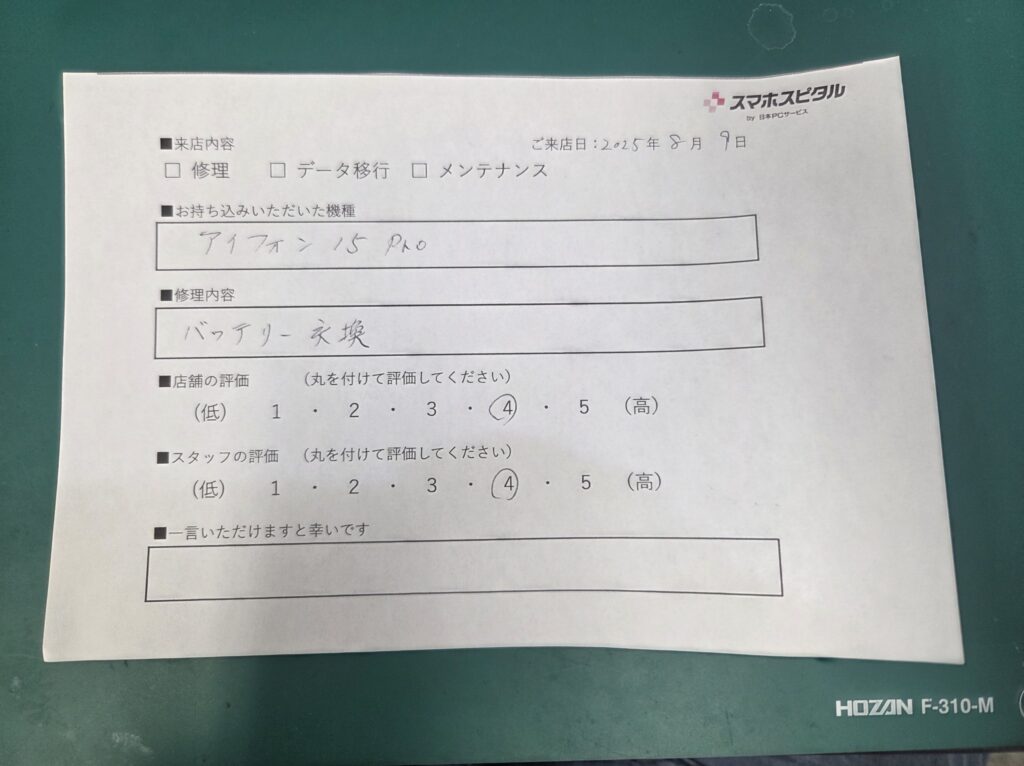 スマホスピタル
by 日本PCサービス
■来店内容 ご来店日：2025年 8月 9日
□ 修理 □ データ移行 □ メンテナンス
■お持ち込みいただいた機種
アイフォン 15 Pro
■修理内容
バッテリー交換
■店舗の評価 （丸を付けて評価してください）
（低） 1 ・ 2 ・ 3 ・ 4 ・ 5 （高）
■スタッフの評価 （丸を付けて評価してください）
（低） 1 ・ 2 ・ 3 ・ 4 ・ 5 （高）
■一言いただけますと幸いです
HOZAN F-310-M